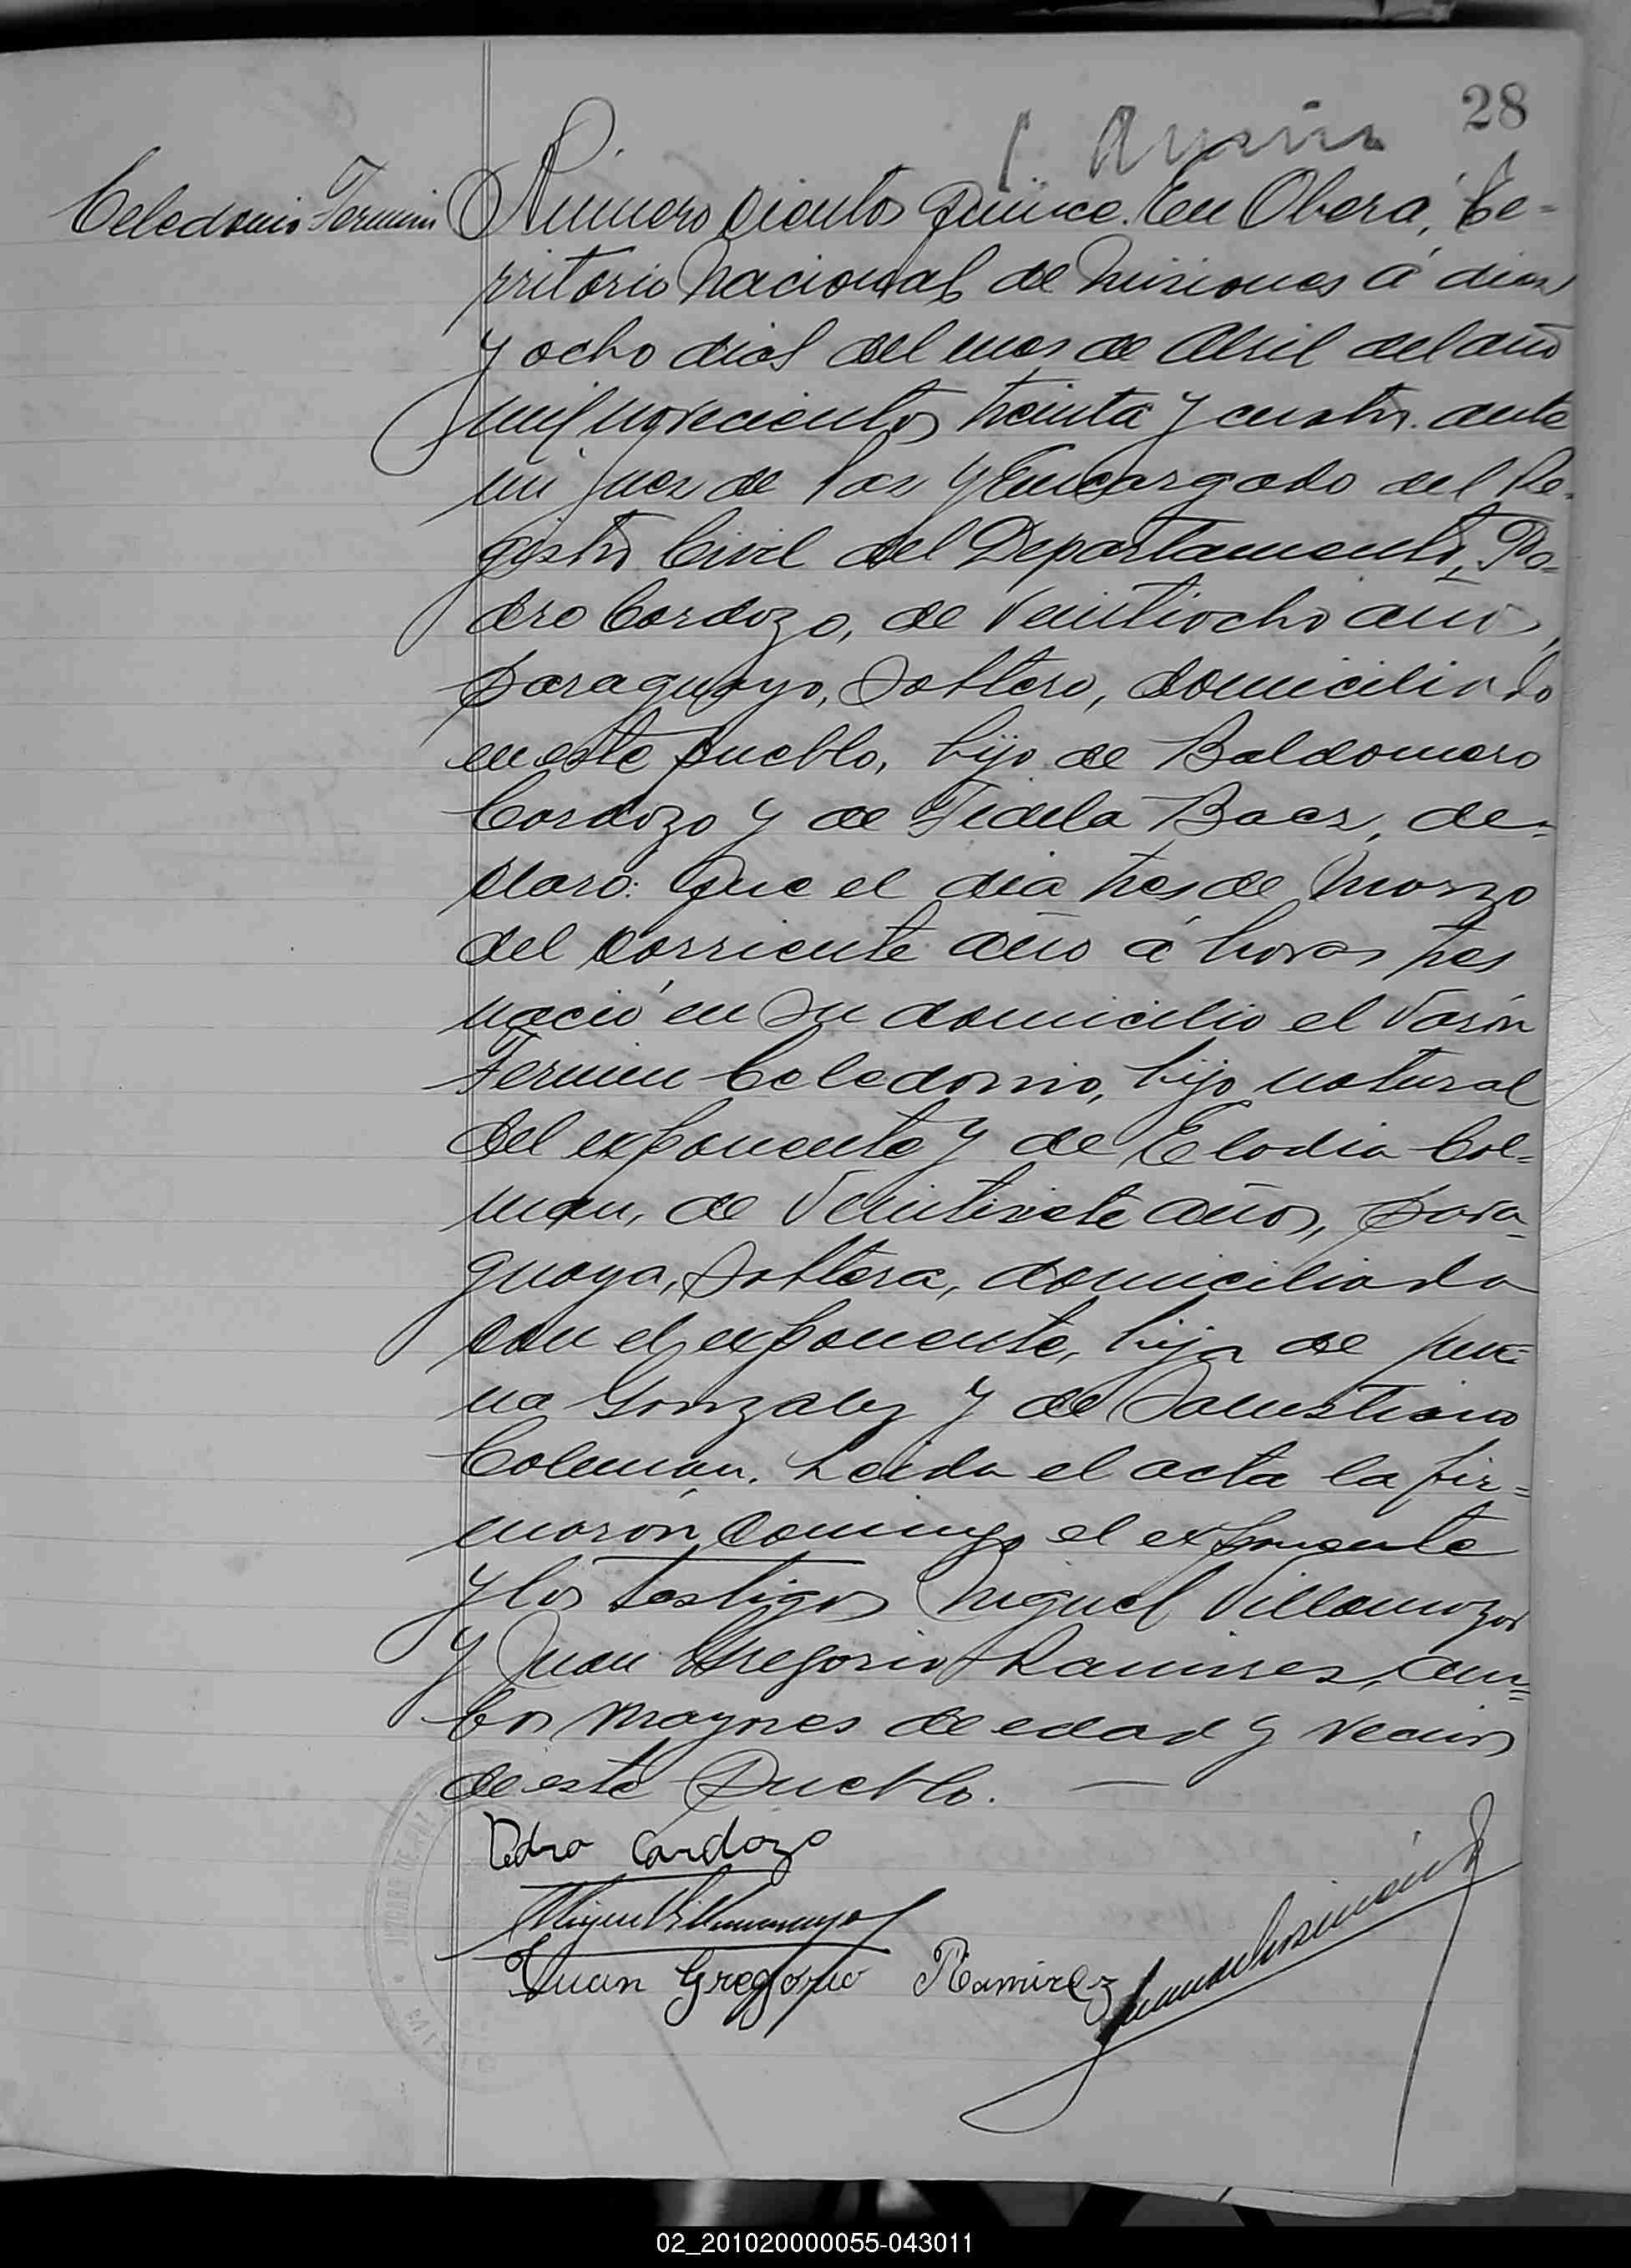 28
Celedonio Fermin
Número ciento quince. En Oberá, Te-
rritorio Nacional de Misiones á diez
y ocho dias del mes de Abril del año
mil novecientos treinta y cuatro. ante
mi Juez de Paz y Encargado del Re-
gistro Civil del Departamento, Pe-
dro Cordozo, de veintiocho años,
paraguayo, soltero, domiciliado
en este pueblo, hijo de Baldomero
Cordozo y de Fidela Baez, de-
claro: Que el dia tres de Marzo
del corriente año á horas tres
nació en su domicilio el varón
Fermin Celedonio, hijo natural
del exponente y de Elodia Col-
man, de veintisiete años, para-
guaya, soltera, domiciliada
con el exponente, hija de
Gonzalez y de Salustiano
Coleman. Leida el acta la fir-
marón conmigo el exponente
y los testigos Miguel Villamayor
y Juan Gregorio Ramires, am-
bos mayores de edad y vecinos
de este Pueblo.
Pedro Cardozo
Miguel Villamayor
Juan Gregorio Ramirez
JUZGADO DE PAZ
02_201020000055-043011